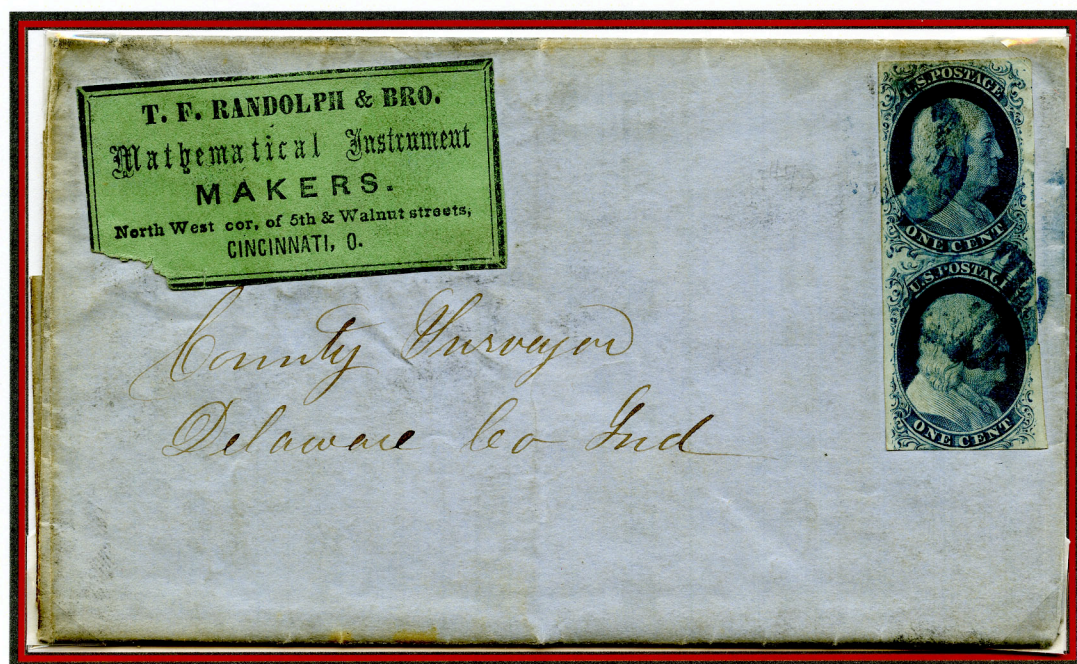 T. F. RANDOLPH & BRO.
Mathematical Instrument
MAKERS.
North West cor. of 5th & Walnut streets,
CINCINNATI, O.
U.S. POSTAGE
ONE CENT
U.S. POSTAGE
ONE CENT
County Surveyor
Delaware Co Ind